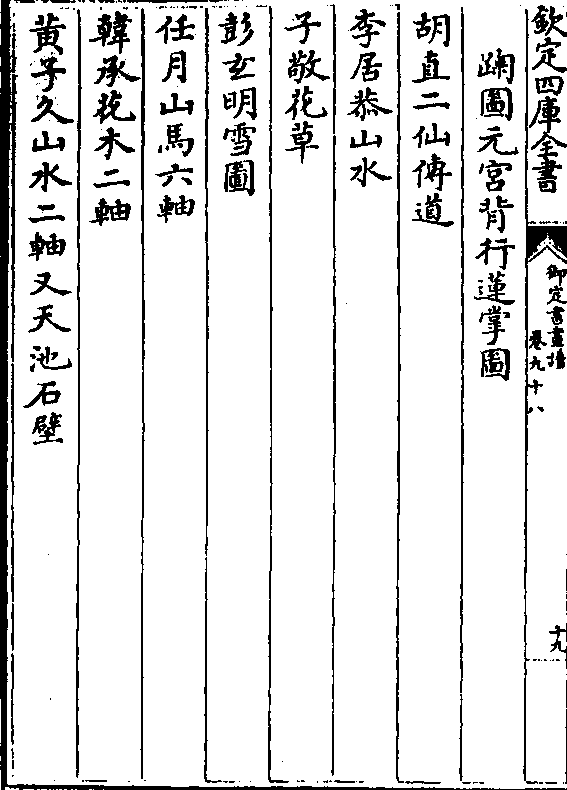 欽定四庫全書
御定書畫譜
卷九十八
十九
踘圖元宮背行蓮掌圖
胡直二仙傳道
李居恭山水
子敬花草
彭玄明雪圖
任月山馬六軸
韓承花木二軸
黃子久山水二軸又天池石壁